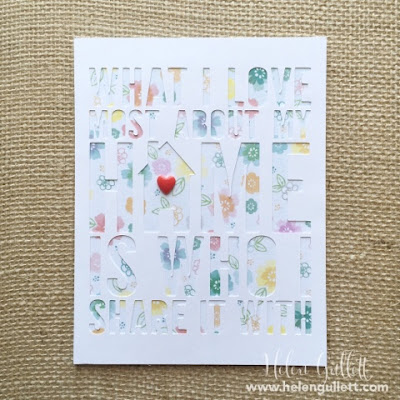 WHAT I LOVE
MOST ABOUT MY
HOME
IS WHO I
SHARE IT WITH
Helen Gullett
www.helengullett.com